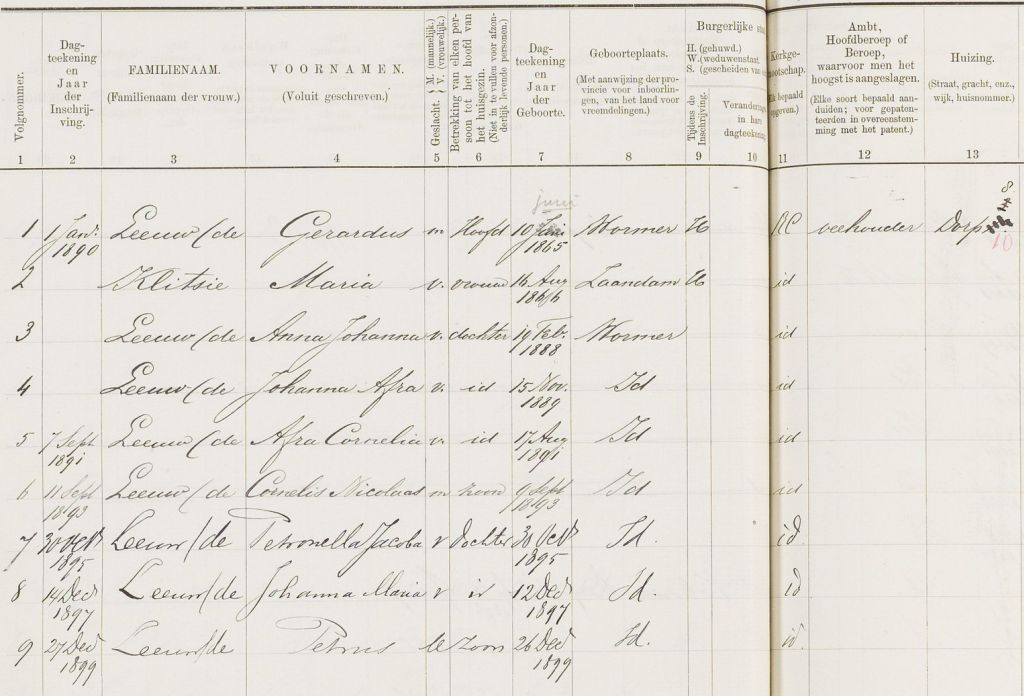 Volgnommer.
Dag-
teekening
en
Jaar
der
Inschrij-
ving.
FAMILIENAAM.
(Familienaam der vrouw.)
VOORNAMEN.
(Voluit geschreven.)
Geslacht. { M. (mannelijk.) V. (vrouwelijk.)
Betrekking van elken per-
soon tot het hoofd van
het huisgezin.
(Niet in te vullen voor afzon-
derlijk levende personen.)
Dag-
teekening
en
Jaar
der
Geboorte.
Geboorteplaats.
(Met aanwijzing der pro-
vincie voor inboorlin-
gen, van het land voor
vreemdelingen.)
Burgerlijke
H. (gehuwd.)
W. (weduwenstaat.
S. (gescheiden van
Tijdens de
Inschrijving.
Veranderin
in haar
dagteeken
Kerkge-
nootschap.
bepaald
opgeven.)
Ambt,
Hoofdberoep of
Beroep,
waarvoor men het
hoogst is aangeslagen.
(Elke soort bepaald aan-
duiden; voor gepaten-
teerden in overeenstem-
ming met het patent.)
Huizing.
(Straat, gracht, enz.,
wijk, huisnommer.)
1 2 3 4 5 6 7 8 9 10 11 12 13
juni 8.
1 1 Jan. Leeuw (de Gerardus m Hoofd 10 Juni Wormer H RC veehouder Dorp
1890 1865 10
2 Klitsie Maria v. vrouw 16 Aug Zaandam H id
1866
3 Leeuw (de Anna Johanna v. dochter 19 Feb. Wormer id
1888
4 Leeuw (de Johanna Afra v. id 15 Nov. Id id
1889
5 7 Sept Leeuw (de Afra Cornelia v. id 17 Aug Id id
1891 1891
6 11 Sept Leeuw (de Cornelis Nicolaas m zoon 9 Sept Id id
1893 1893
7 30 Oct Leeuw (de Petronella Jacoba v Dochter 30 Oct Id. id.
1895 1895
8 14 Dec Leeuw (de Johanna Maria v id 12 Dec Id. id
1897 1897
9 27 Dec Leeuw (de Petrus M zoon 26 Dec Id. id.
1899 1899